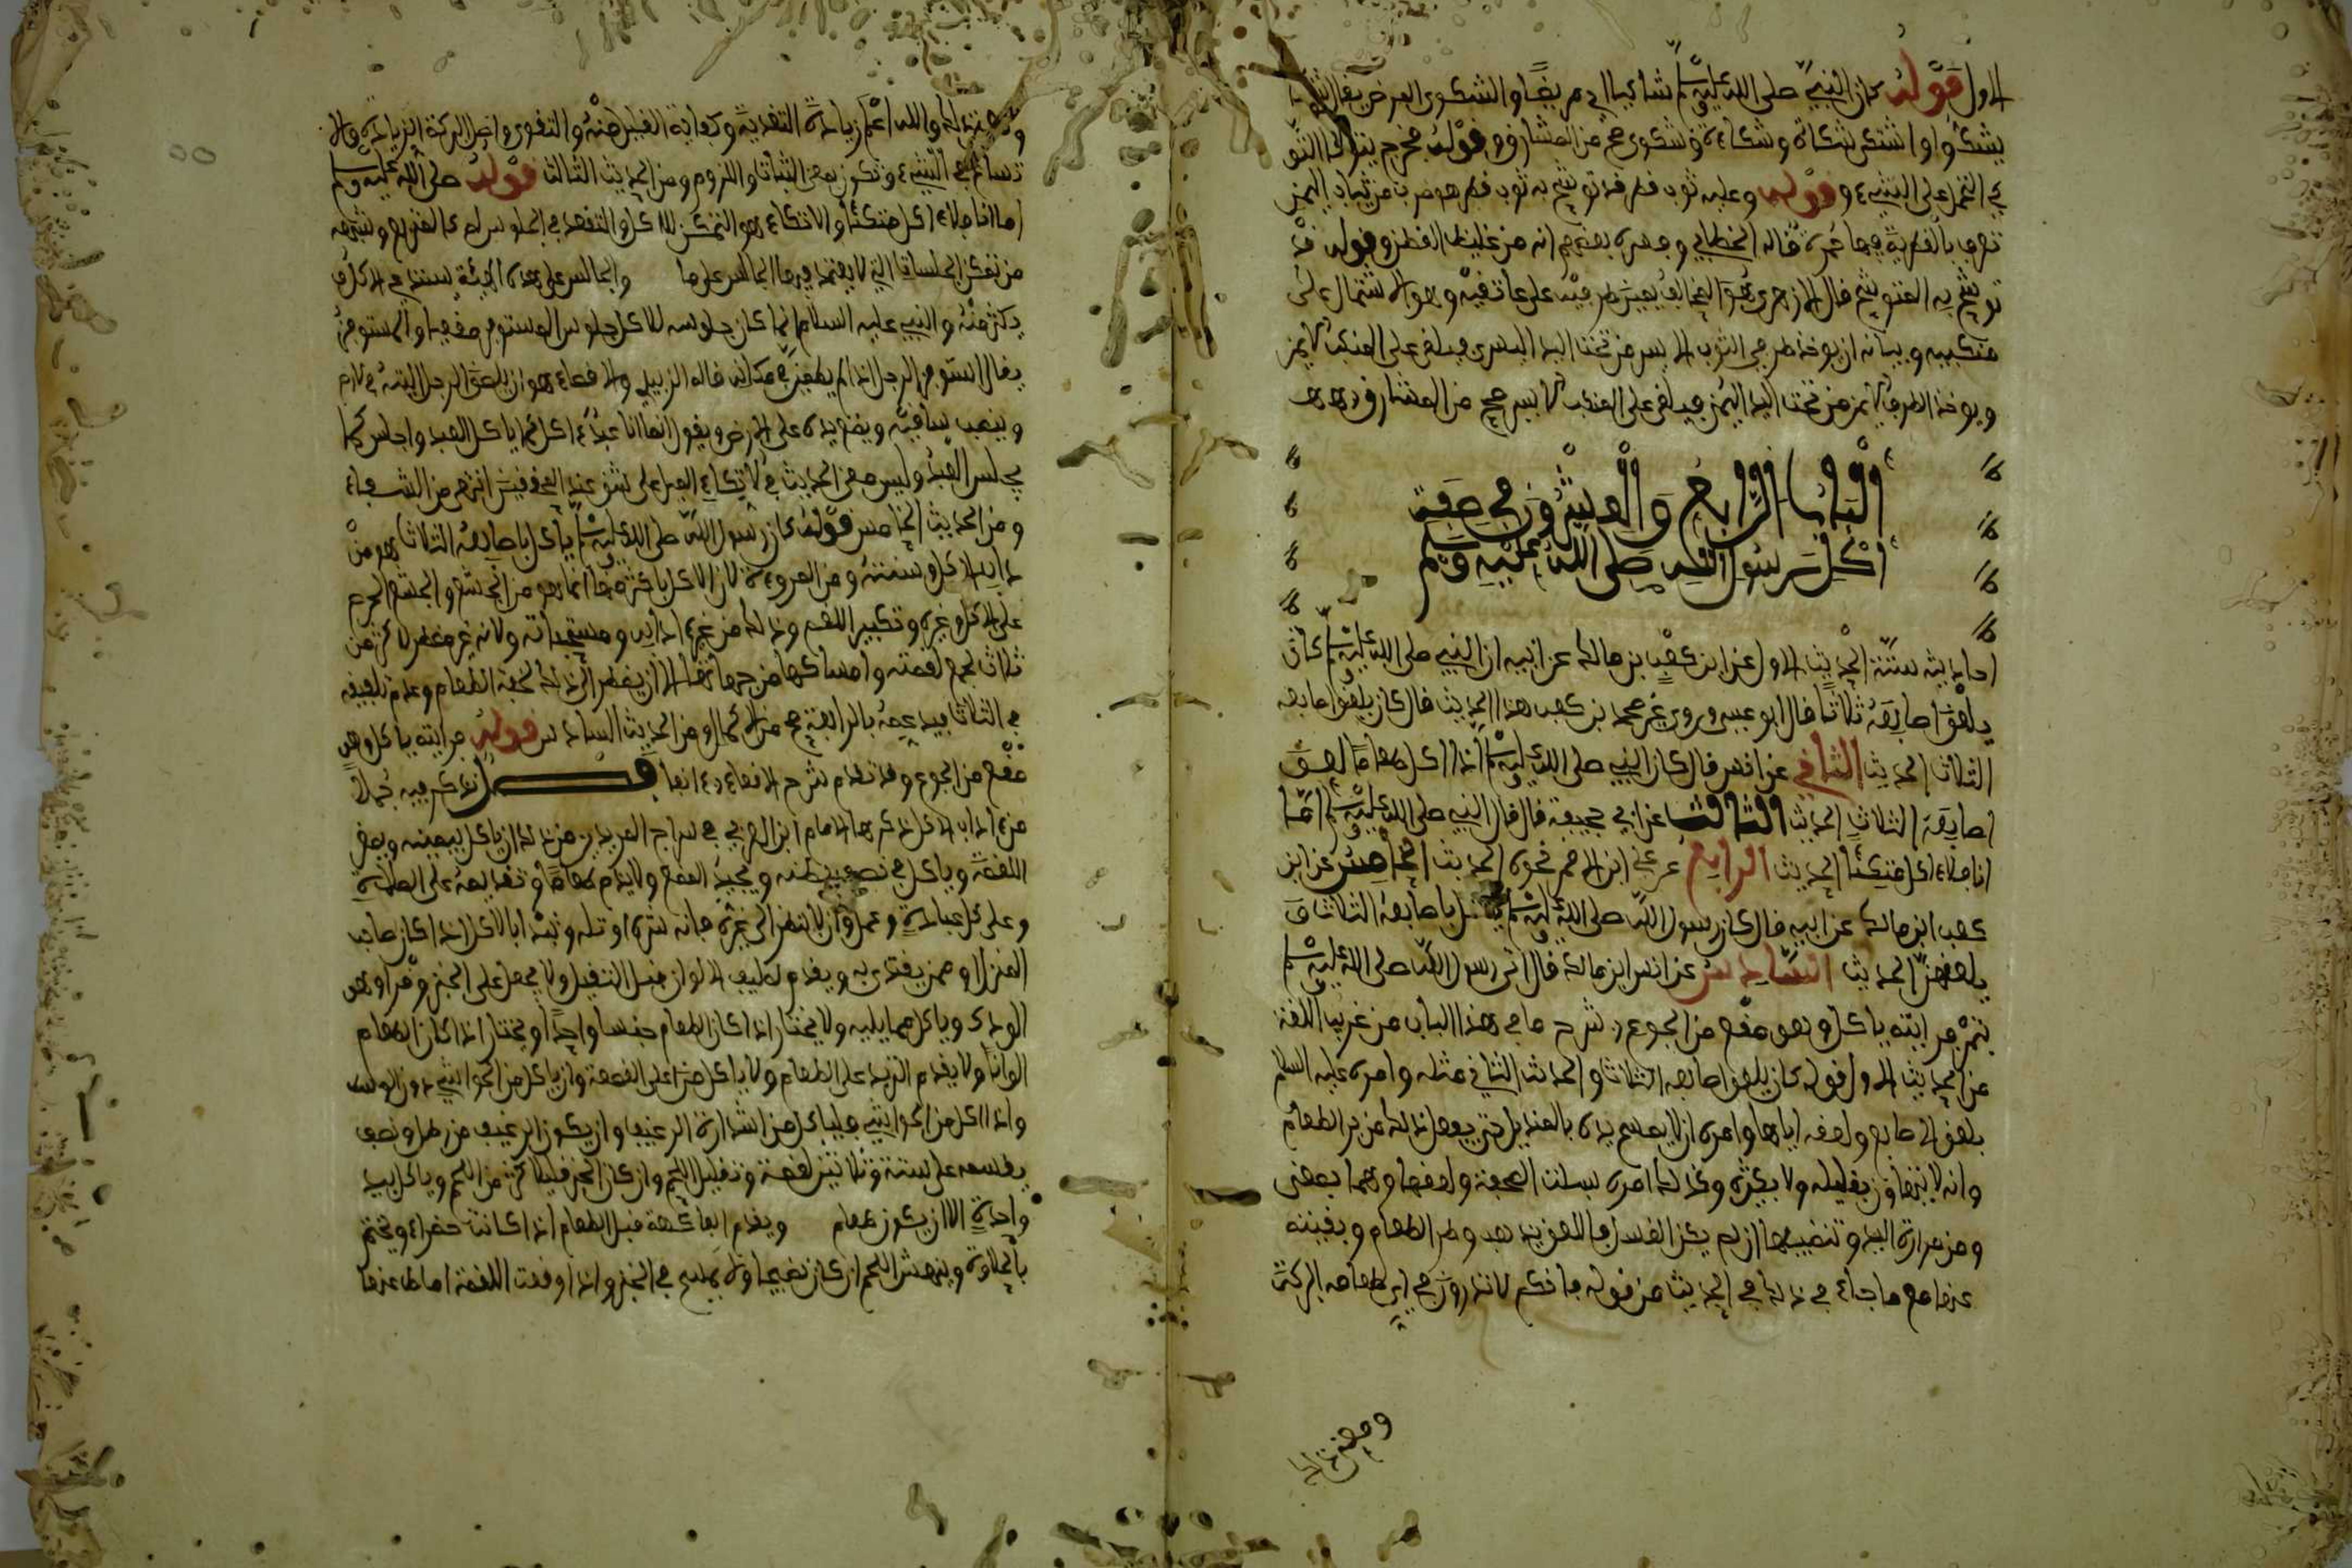 الاول قوله كان النبي صلى الله عليه وسلم شاكيا اي مريضا والشكوى المرض يقال
يشكوا واشتكى شكاة وشكاءة وشكوى صح من المشارق وقوله فخرج يتوكأ التو
كي التحمل على الشيء وقوله وعليه ثوب قطر قد توشح به ثوب قطر هو ضرب من ثياب اليمن
تعرف بالقطرية فيها حمرة قاله الخطابي وفسره بعضهم انه من غليظ القطن وقوله قد
توشح به المتوشح قال الازهري هو المخالف بين طرفيه على عاتقيه وهو الاشتمال على
منكبيه وبيانه ان يوخذ طرفي الثوب الايسر من تحت اليد اليسرى فيلقى على المنكب الايمن
ويوخذ الطرف الايمن من تحت اليد اليمنى فيلقى على المنكب الايسر صح من المشارق
الباب الرابع والعشرون في صفة
اكل رسول الله صلى الله عليه وسلم
احاديثه ستة الحديث الاول عن ابن كعب بن مالك عن ابيه ان النبي صلى الله عليه وسلم كان
يلعق اصابعه ثلاثا قال ابو عيسى وروى غير محمد بن كعب هذا الحديث قال كان يلعق اصابعه
الثلاث الحديث الثاني عن انس قال كان النبي صلى الله عليه وسلم اذا اكل طعاما لعق
اصابعه الثلاث الحديث الثالث عن ابي جحيفة قال قال النبي صلى الله عليه وسلم اما
انا فلا ءاكل متكئا الحديث الرابع عن علي ابن الاقمر نحوه الحديث الخامس عن ابن
كعب ابن مالك عن ابيه قال كان رسول الله صلى الله عليه وسلم ياكل باصابعه الثلاث و
يلعقهن الحديث السادس عن انس ابن مالك قال اتي رسول الله صلى الله عليه وسلم
بتمر فرايته ياكل وهو مقع من الجوع شرح ما في هذا الباب من غريب اللغة
من الحديث الاول قوله كان يلعق اصابعه الثلاث والحديث الثاني مثله وامره عليه السلام
بلعق الاصابع ولعقه اياها وامره ان لا يمسح يده بالمنديل حتى يفعل ذلك من بر الطعام
وانه لا يتهاون بقليله ولا بكثيره وكذلك امره بسلت الصحفة ولعقها وهما بمعنى
ومن مرارة اليد وتنظيفها ان لم يكن الغسل فاللعق يذهب وطر الطعام وبقيته
عنها مع ما جاء في ذلك في الحديث من قوله فانكم لا تدرون في اي طعامه البركة
ومعنى ذلك
ومعنى ذلك والله اعلم زيادة التغذية وكفاية القليل منه والتقوي واصل البركة الزيادة والا
تساع في الشيء وتكون بمعنى الثبات واللزوم ومن الحديث الثالث قوله صلى الله عليه وسلم
اما انا فلا ءاكل متكئا والاتكاء هو التمكن للاكل والتقعد في الجلوس له كالمتربع وشبهه
من تمكن الجلسات التي لا يعتمد فيها الجالس على ما والجالس على هذه الهيئة يستدعي الاكل و
يكثر منه والنبي عليه السلام انما كان جلوسه للاكل جلوس المستوفز مقعيا والمستوفز
يقال استوفز الرجل اذا لم يطمئن في مكانه قاله الزبيدي والاقعاء هو ان يلصق الرجل اليتيه في الارض
وينصب ساقيه ويضع يده على الارض ويقول انما انا عبد ءاكل كما ياكل العبد واجلس كما
يجلس العبد وليس معنى الحديث في الاتكاء الميل على شق عند المحققين انتهى من الشفاء
ومن الحديث الخامس قوله كان رسول الله صلى الله عليه وسلم ياكل باصابعه الثلاث هو من
ءاداب الاكل وسنته ومن المروءة لان الاكل باكثر منها انما هو من الجشع والجشع الحرص
على الاكل وغيره وتكبير اللقم وذلك من غير ءادابه ومستحباته ولانه غير مضطر لاكثر من
ثلاث لجمع لقمته وامساكها من جهاتها الا ان يضطر الى ذلك لخفة الطعام وعدم تلفيفه
في الثلاث فيدعمه بالرابعة صح من الاكمال ومن الحديث السادس قوله فرايته ياكل وهو
مقع من الجوع وقد تقدم شرح الاقعاء انفا فصل نذكر فيه جملا
من ءاداب الاكل ذكرها الامام ابن العربي في سراج المريدين من ذلك ان ياكل بيمينه ويصغر
اللقمة وياكل في نصف بطنه ويجيد المضغ ولا يذم طعاما وتقديمه على الصلاة
وعلى كل عبادة وعمل وان لا ينظر الى غيره فانه شره او تله ويبدا بالاكل اذا كان صاحب
المنزل او ممن يقتدى به ويقدم لطيف الالوان قبل الثقيل ولا يجعل على الخبز وضرا وهو
الودك وياكل مما يليه ولا يختار اذا كان الطعام جنسا واحدا ويختار اذا كان الطعام
الوانا ولا يقدم الثريد على الطعام ولا ياكل من اعلى القصعة وان ياكل من الحواشي دون الوسط
واذا اكل من الحواشي فلياكل من استدارة الرغيف وان يكون الرغيف من رطل ونصف
يقسمه على ستة وثلاثين لقمة وتقليل اللحم وان كان الخبز قليلا اكثر من اللحم وياكل بيد
واحدة الا ان يكون طعام ويقدم الفاكهة قبل الطعام اذا كانت حضراء ويختم
بالحلاوة وينهش اللحم ان كان نضيجا ولا يمسح في الخبز واذا وقعت اللقمة اماط عنها